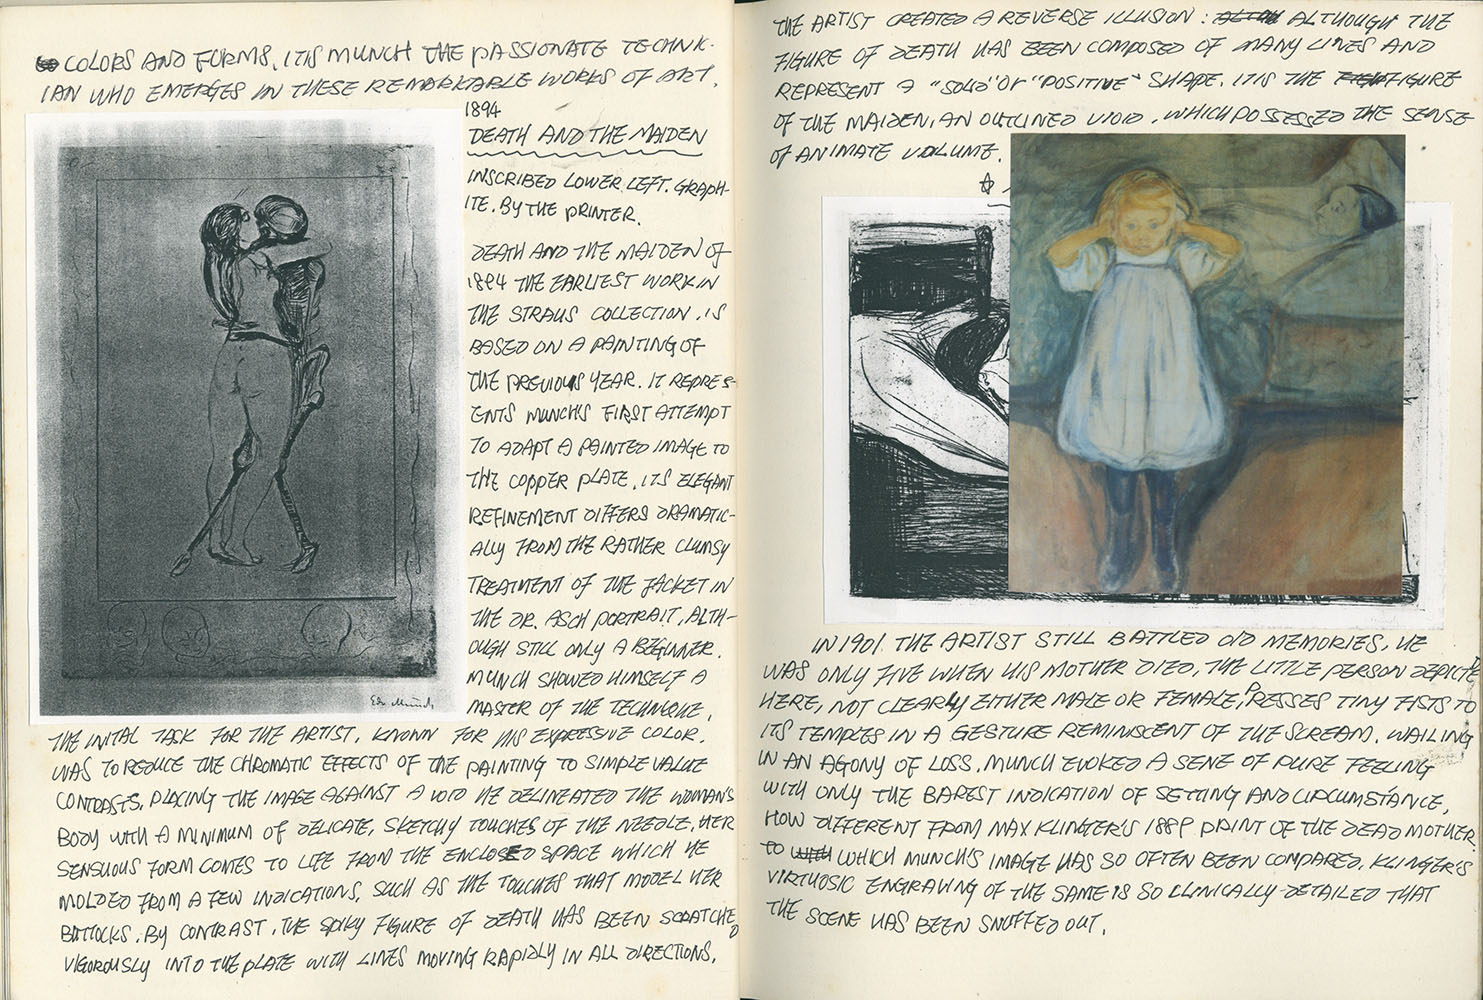 COLORS AND FORMS, IT IS MUNCH THE PASSIONATE TECHNIC-
IAN WHO EMERGES IN THESE REMARKABLE WORKS OF ART.
1894
DEATH AND THE MAIDEN
INSCRIBED LOWER LEFT. GRAPH-
ITE. BY THE PRINTER.
DEATH AND THE MAIDEN OF
1894 THE EARLIEST WORK IN
THE STRAUS COLLECTION. IS
BASED ON A PAINTING OF
THE PREVIOUS YEAR. IT REPRES-
ENTS MUNCH'S FIRST ATTEMPT
TO ADAPT A PAINTED IMAGE TO
THE COPPER PLATE. ITS ELEGANT
REFINEMENT DIFFERS DRAMATIC-
ALLY FROM THE RATHER CLUMSY
TREATMENT OF THE JACKET IN
THE DR. ASCH PORTRAIT, ALTH-
OUGH STILL ONLY A BEGINNER.
MUNCH SHOWED HIMSELF A
MASTER OF THE TECHNIQUE.
Edv Munch
THE INITAL TASK FOR THE ARTIST, KNOWN FOR HIS EXPRESSIVE COLOR.
WAS TO REDUCE THE CHROMATIC EFFECTS OF THE PAINTING TO SIMPLE VALUE
CONTRASTS, PLACING THE IMAGE AGAINST A VOID HE DELINEATED THE WOMAN'S
BODY WITH A MINIMUM OF DELICATE, SKETCHY TOUCHES OF THE NEEDLE. HER
SENSUOUS FORM COMES TO LIFE FROM THE ENCLOSED SPACE WHICH HE
MOLDED FROM A FEW INDICATIONS, SUCH AS THE TOUCHES THAT MODEL HER
BUTTOCKS. BY CONTRAST, THE SPIKY FIGURE OF DEATH HAS BEEN SCRATCHED
VIGOROUSLY INTO THE PLATE WITH LINES MOVING RAPIDLY IN ALL DIRECTIONS.
THE ARTIST CREATED A REVERSE ILLUSION: ALTHOUGH THE
FIGURE OF DEATH HAS BEEN COMPOSED OF MANY LINES AND
REPRESENT A "SOLID" OR "POSITIVE" SHAPE. IT IS THE FIGURE
OF THE MAIDEN, AN OUTLINED VOID, WHICH POSSESSED THE SENSE
OF ANIMATE VOLUME.
IN 1901. THE ARTIST STILL BATTLED OLD MEMORIES, HE
WAS ONLY FIVE WHEN HIS MOTHER DIED, THE LITTLE PERSON DEPICTED
HERE, NOT CLEARLY EITHER MALE OR FEMALE, PRESSES TINY FISTS TO
ITS TEMPLES IN A GESTURE REMINISCENT OF THE SCREAM. WAILING
IN AN AGONY OF LOSS. MUNCH EVOKED A SENE OF PURE FEELING
WITH ONLY THE BAREST INDICATION OF SETTING AND CIRCUMSTANCE,
HOW DIFFERENT FROM MAX KLINGER'S 1889 PRINT OF THE DEAD MOTHER.
TO WITH WHICH MUNCH'S IMAGE HAS SO OFTEN BEEN COMPARED. KLINGER'S
VIRTUOSIC ENGRAVING OF THE SAME IS SO CLINICALLY DETAILED THAT
THE SCENE HAS BEEN SNUFFED OUT.